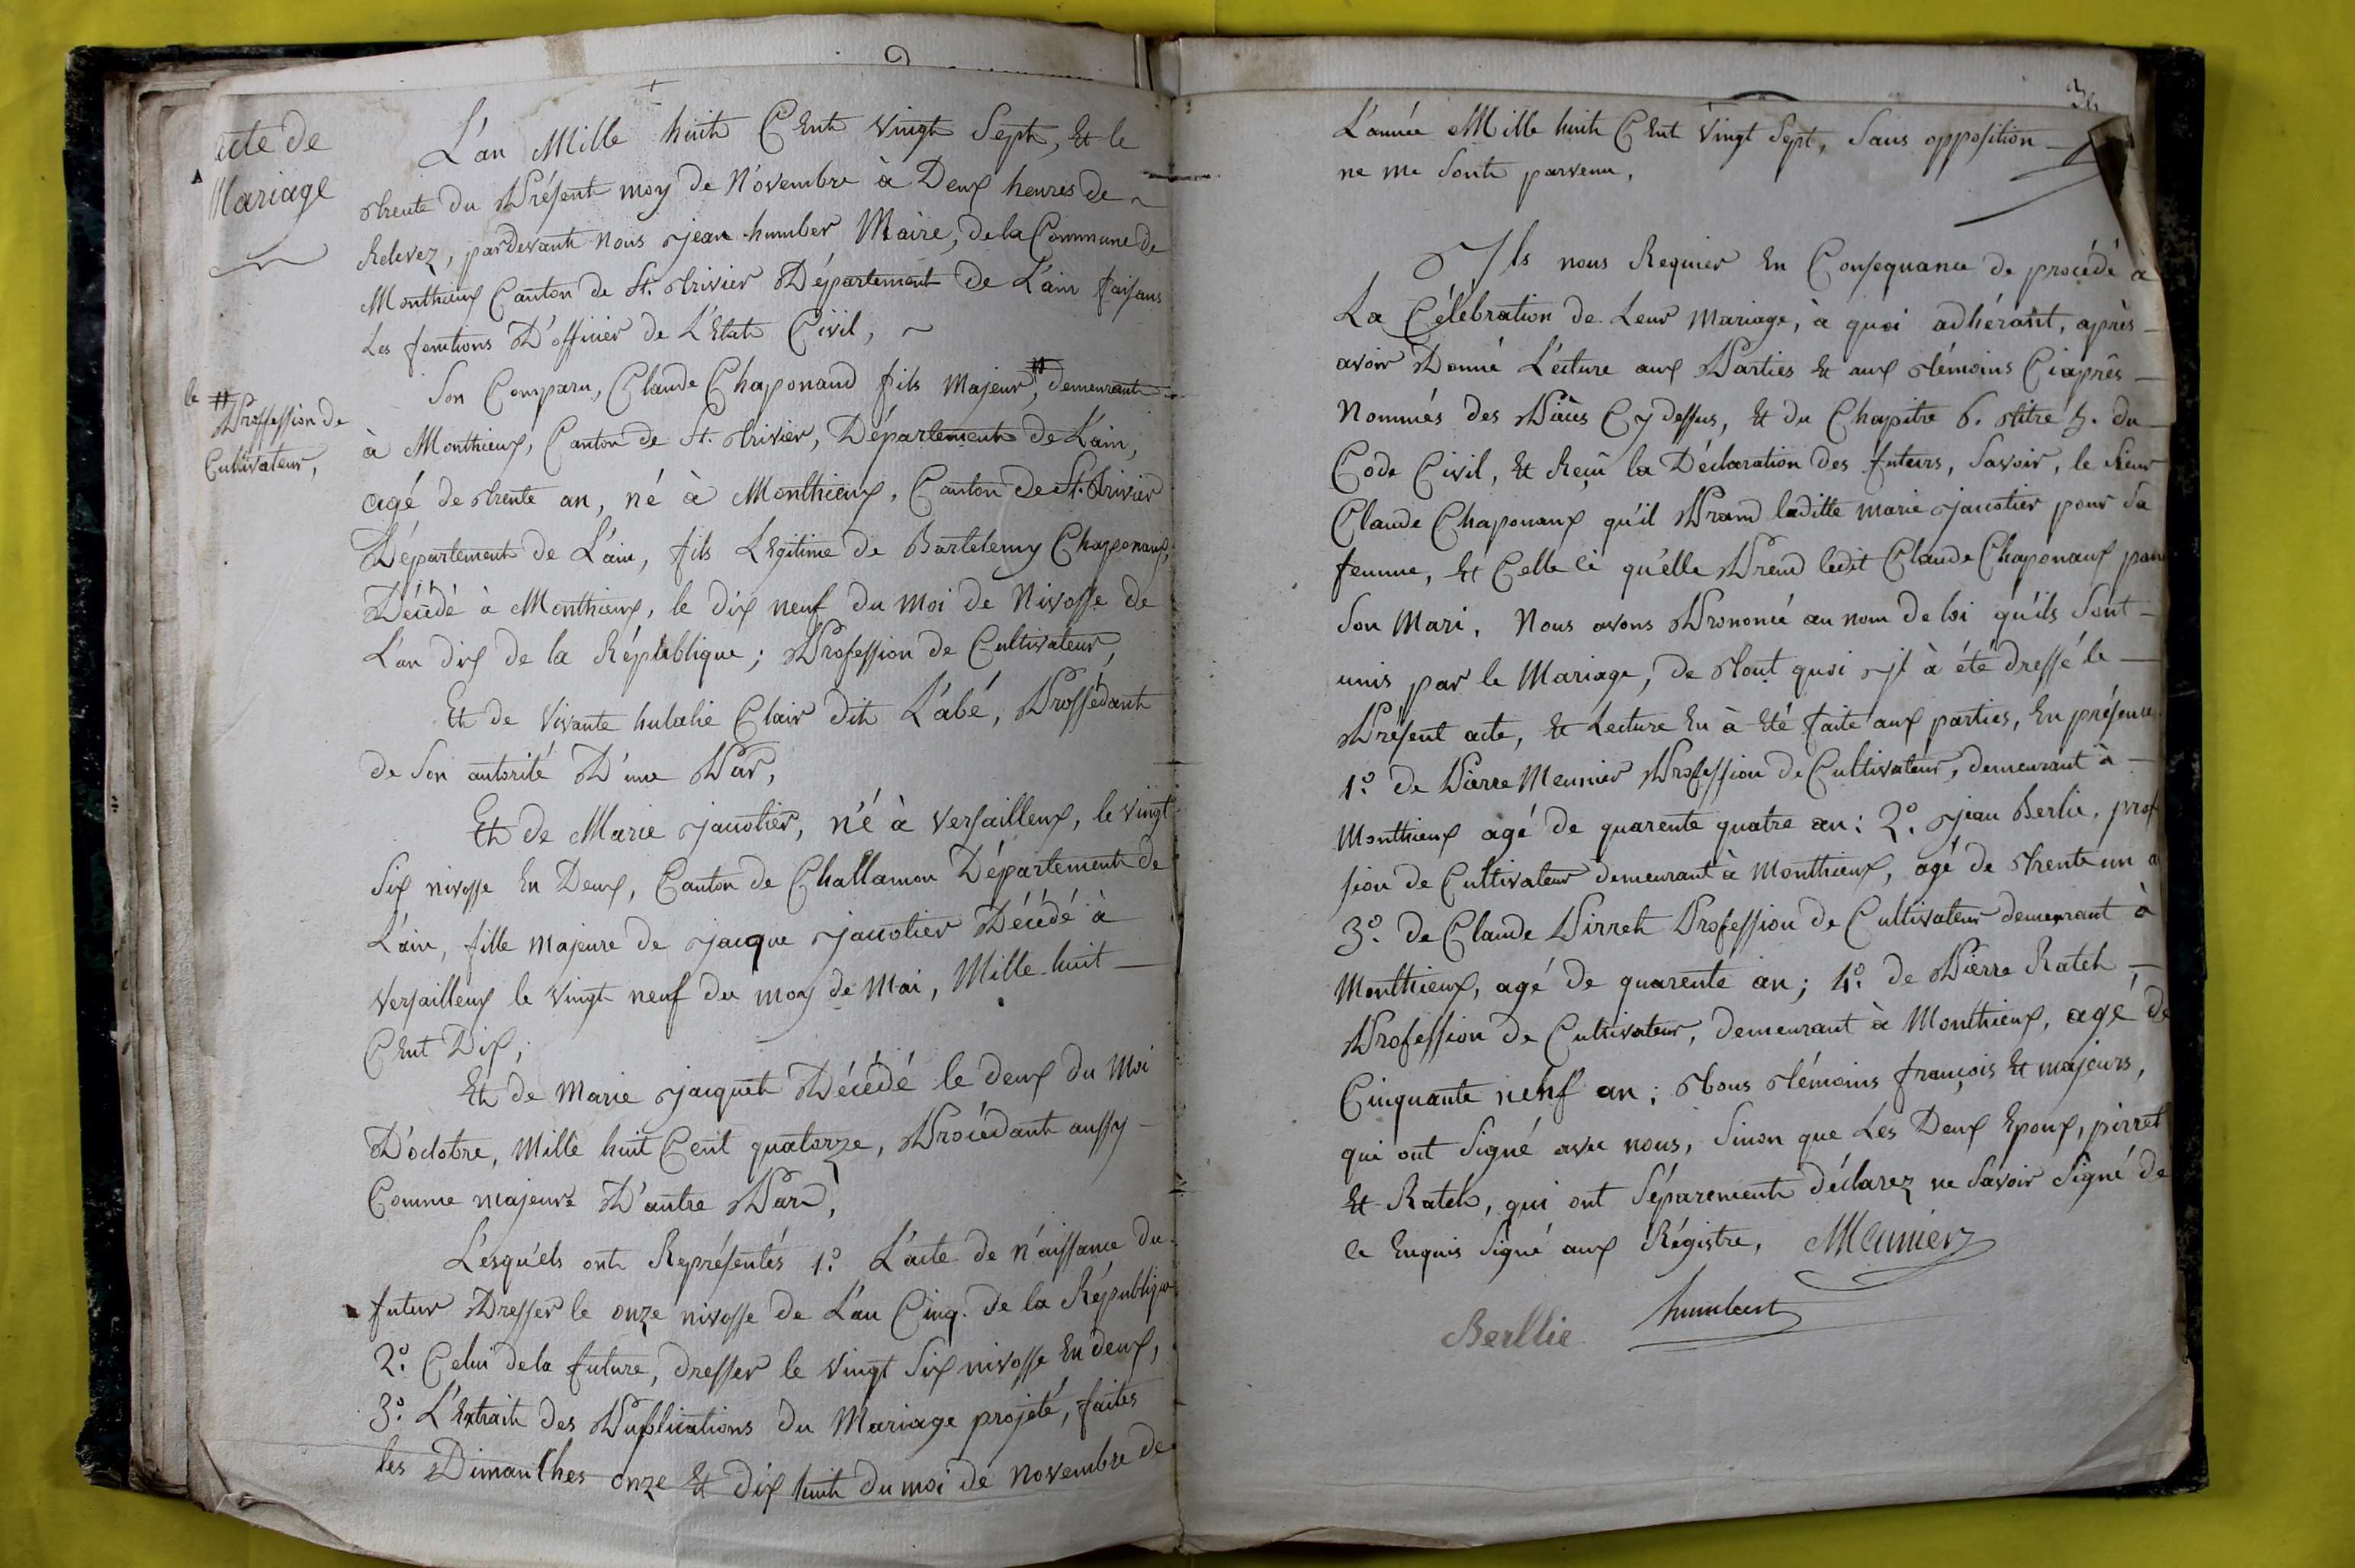 acte de
Mariage
L'an Mille huit Cent vingt Sept, Et le
trente du Présent moy de Novembre à Deux heures de
Relevez, pardevant nous jean humber Maire, de la Commune de
Monthieux Canton de St. trivier Département de L'ain faisans
Les fonctions D'officier de L'Etat Civil,
Son Comparu, Claude Chaponaud fils Majeur, # demeurant
le # Proffession de
Cultivateur,
à Monthieux, Canton de St. trivier, Département de L'ain,
agé de trente an, né à Monthieux, Canton de St. trivier
Département de L'ain, fils Legitime de Bartelemy Chaponaux,
Décédé à Monthieux, le dix neuf du moi de Nivosse de
L'an dix de la République; Profession de Cultivateur,
Et de vivante hulalie Clair dit L'abé, Prossédant
de Son autorité D'une Par,
Et de Marie jacotier, n'é à Versailleux, le vingt
Six nivosse En Deux, Canton de Challamon Département de
L'ain, fille majeure de jacque jacotier Décédé à
Versailleux le vingt neuf du moy de Mai, Mille huit
Cent Dix,
Et de Marie jacquet Décédé le deux du Moi
D'octobre, Mille huit Cent quatorze, Procédant aussy
Comme majeure D'autre Pard,
L'esquéls ont Représentés 1.° L'acte de n'aissance du
futur Dresser le onze nivosse de L'an Cinq. de la République
2.° Celui de la future, dresser le vingt Six nivosse En deux,
3.° L'Extrait des Publications du Mariage projeté, faites
les Dimanches onze Et dix huit du moi de Novembre de
L'année Mille huit Cent vingt Sept, Sans opposition
ne me Sont parvenu,
Ils nous Requier En Consequance de procédé à
La Célébration de Leur Mariage, à quoi adhérant, après
avoir Donné L'ecture aux Parties Et aux témoins Ciaprès
Nommés des Pièces Cy dessus, Et du Chapitre 6. titre 5. du
Code Civil, Et Reçu la Déclaration des futurs, Savoir, le Sieur
Claude Chaponaux qu'il Prand laditte marie jacotier pour Sa
femme, Et Celle Ci qu'elle Prend ledit Claude Chaponaux pour
Son Mari, Nous avons Prononcé au nom de loi qu'ils Sont
unis par le Mariage, de tout quoi il à été dressé le
Présent acte, Et Lecture En à Eté faite aux parties, En présence
1.° de Pierre Meunier Profession de Cultivateur, demeurant à
Monthieux agé de quarente quatre an: 2.° jean Berlie, prof
sion de Cultivateur demeurant à Monthieux, agé de trente un a
3.° de Claude Pirret Profession de Cultivateur demeurant à
Monthieux, agé de quarente an; 4.° de Pierre Ratet,
Profession de Cultivateur, demeurant à Monthieux, agé de
Cinquante neuf an; tous témoins françois Et majeurs,
qui ont Signé avec nous, Sinon que Les Deux Epoux, pirret
Et Ratet, qui ont Séparement déclarez ne Savoir Signé de
ce Enquis Signé aux Régistre, Meunier
humbert
Berllie